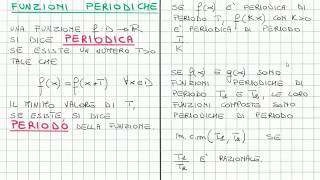 FUNZIONI PERIODICHE
UNA FUNZIONE f: D → R
SI DICE PERIODICA
SE ESISTE UN NUMERO T>0
TALE CHE
f(x) = f(x+T) ∀x∈D
IL MINIMO VALORE DI T,
SE ESISTE, SI DICE
PERIODO DELLA FUNZIONE.
SE f(x) E' PERIODICA DI
PERIODO T, f(Kx) CON K>0
E' PERIODICA DI PERIODO
T
K
SE f(x) E g(x) SONO
FUNZIONI PERIODICHE DI
PERIODO T₁ E T₂, LE LORO
FUNZIONI COMPOSTE SONO
PERIODICHE DI PERIODO
m.c.m (T₁, T₂) SE
T₁
T₂ E' RAZIONALE.